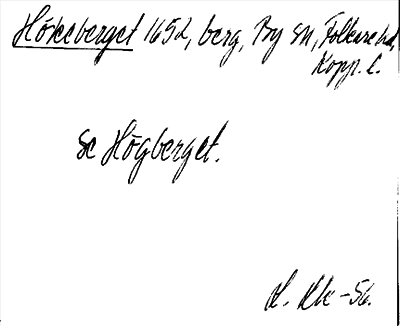 Hökeberget 1652, berg, By sn, Folkare hd,
Kopp. l.
Se Högberget.